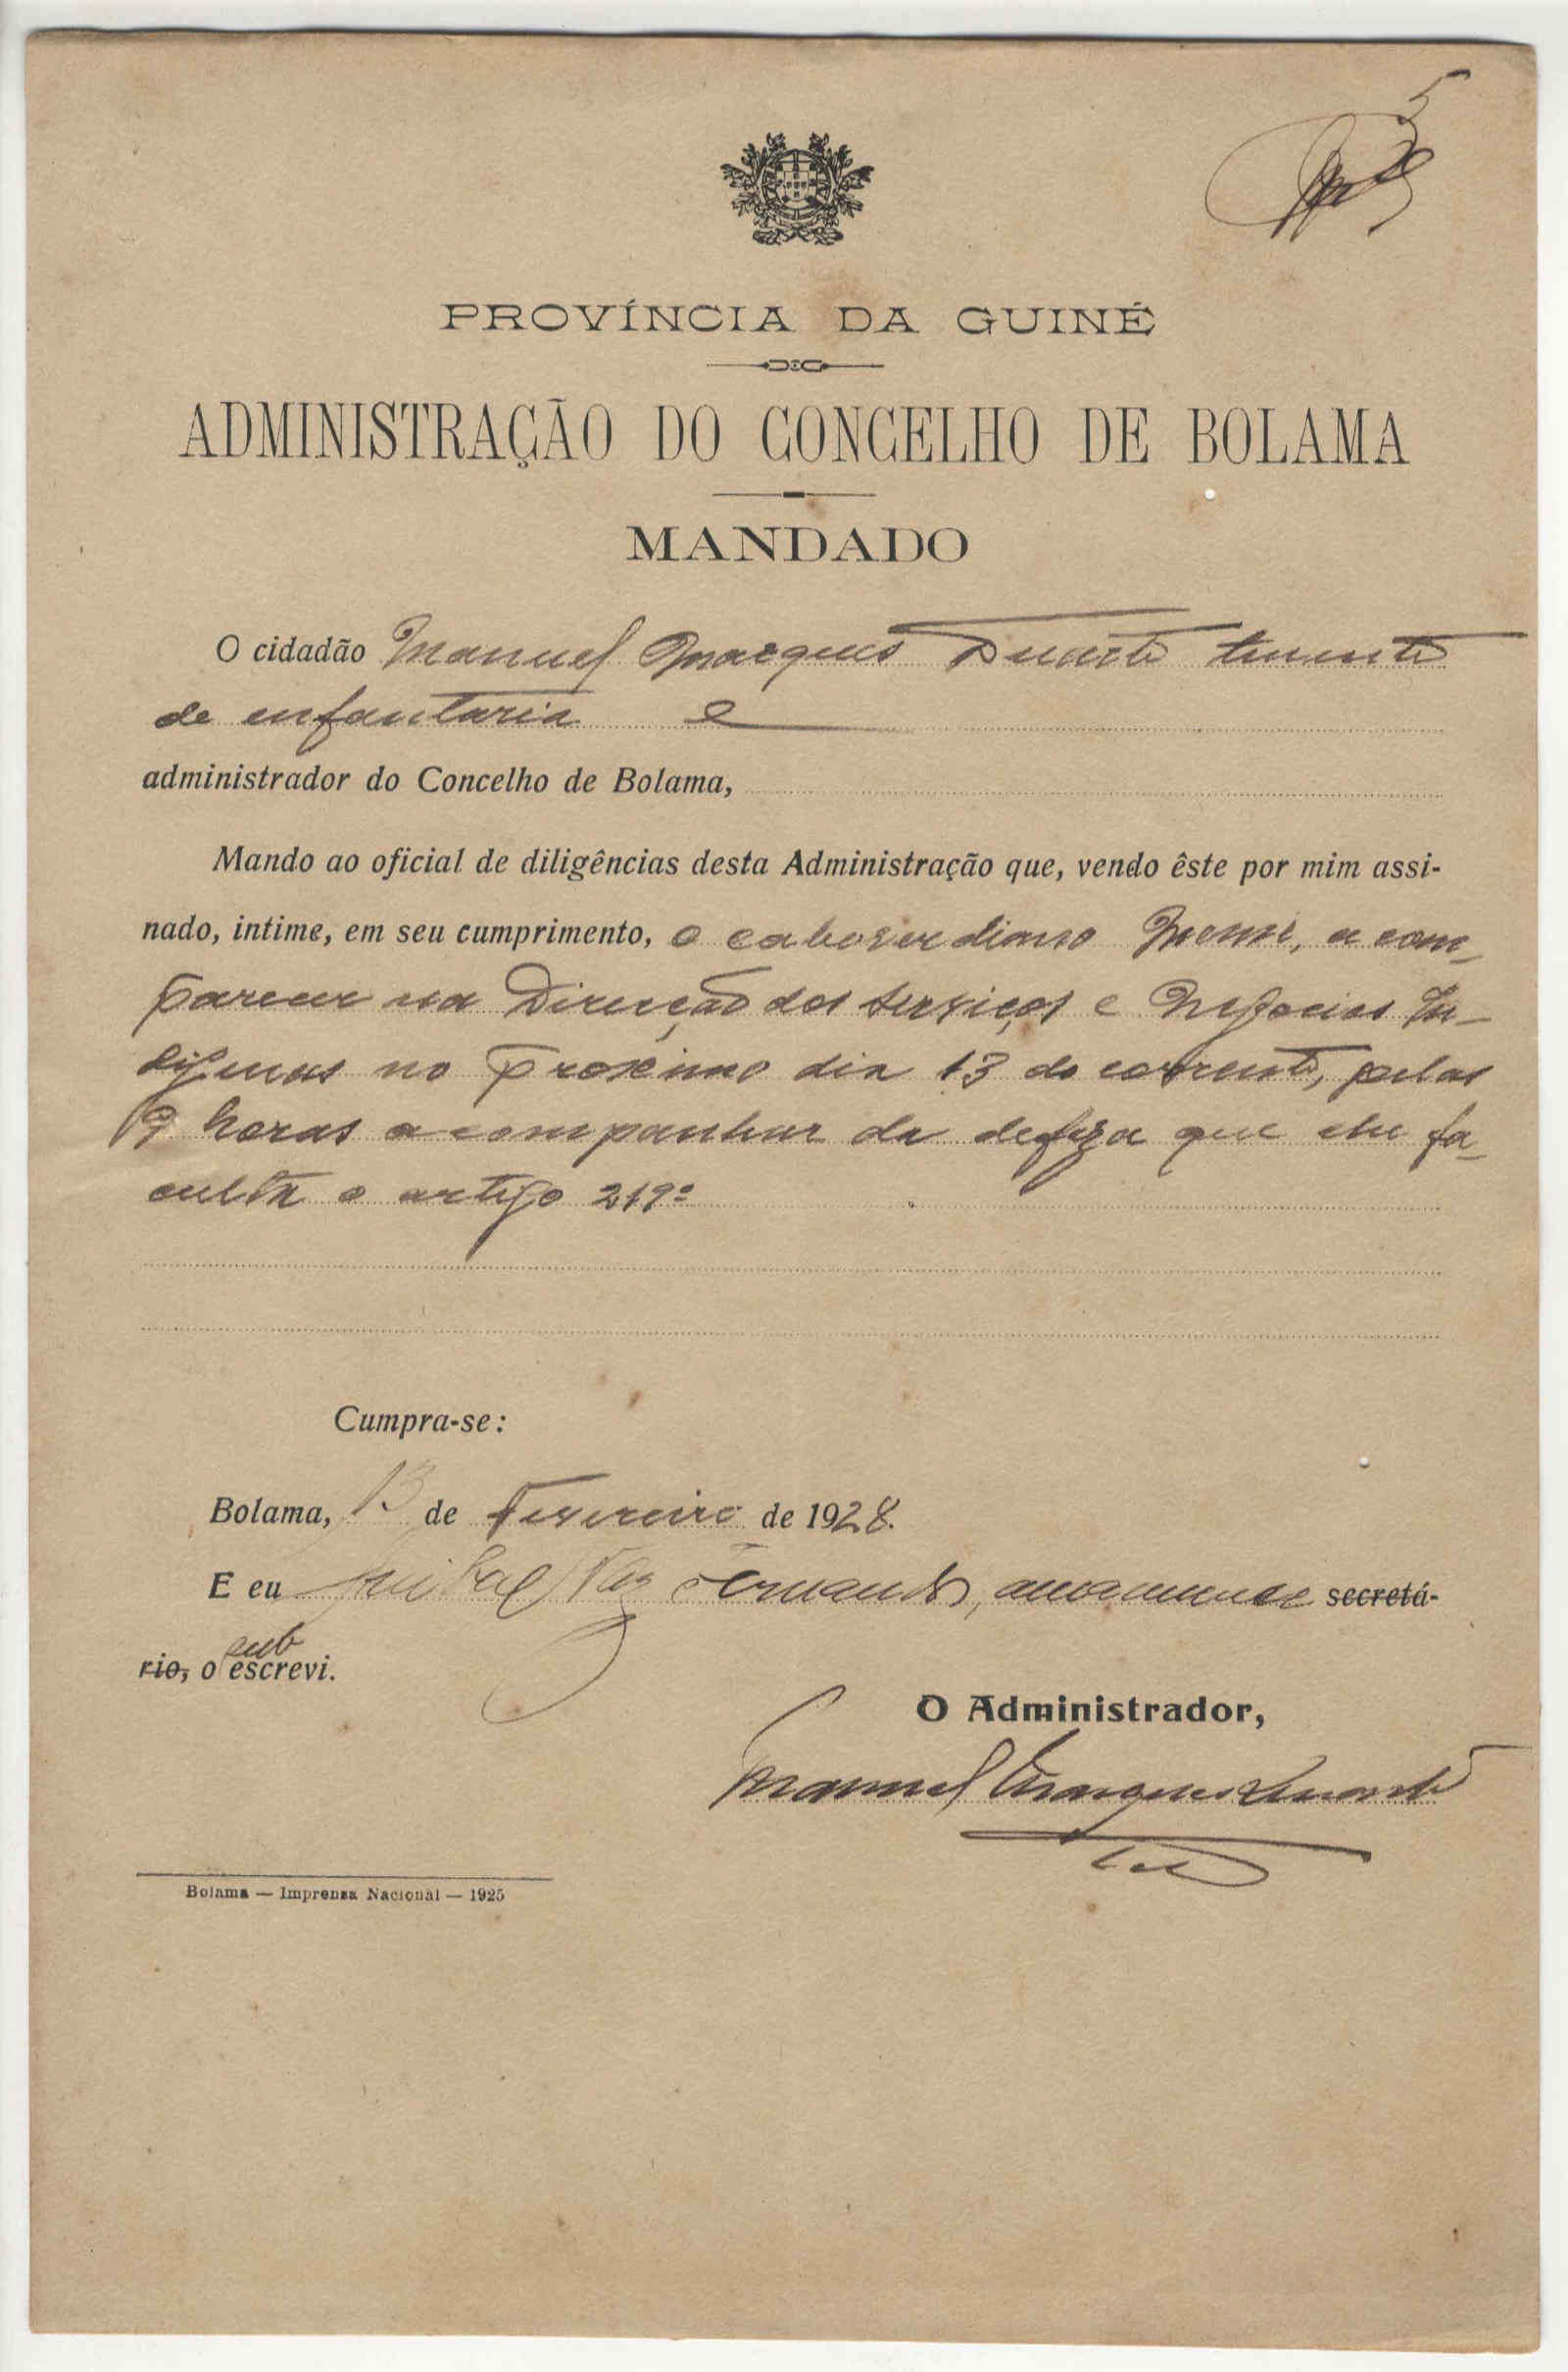 5
PROVÍNCIA DA GUINÉ
ADMINISTRAÇÃO DO CONCELHO DE BOLAMA
MANDADO
O cidadão Manuel Marques Duarte tenente
de enfantaria e
administrador do Concelho de Bolama,
Mando ao oficial de diligências desta Administração que, vendo êste por mim assi-
nado, intime, em seu cumprimento, o caboverdiano a com-
parecer na Direcção dos Serviços e Negocios In-
digenas no proximo dia 13 do corrente, pelas
9 horas acompanhar da defeza que lhe fa-
culta o artigo 219º
Cumpra-se:
Bolama, 13 de Fevereiro de 1928.
E eu Anibal Vaz Fernandes, amanuense secretá-
rio, o subescrevi.
O Administrador,
Manuel Marques Duarte
Bolama — Imprensa Nacional — 1925